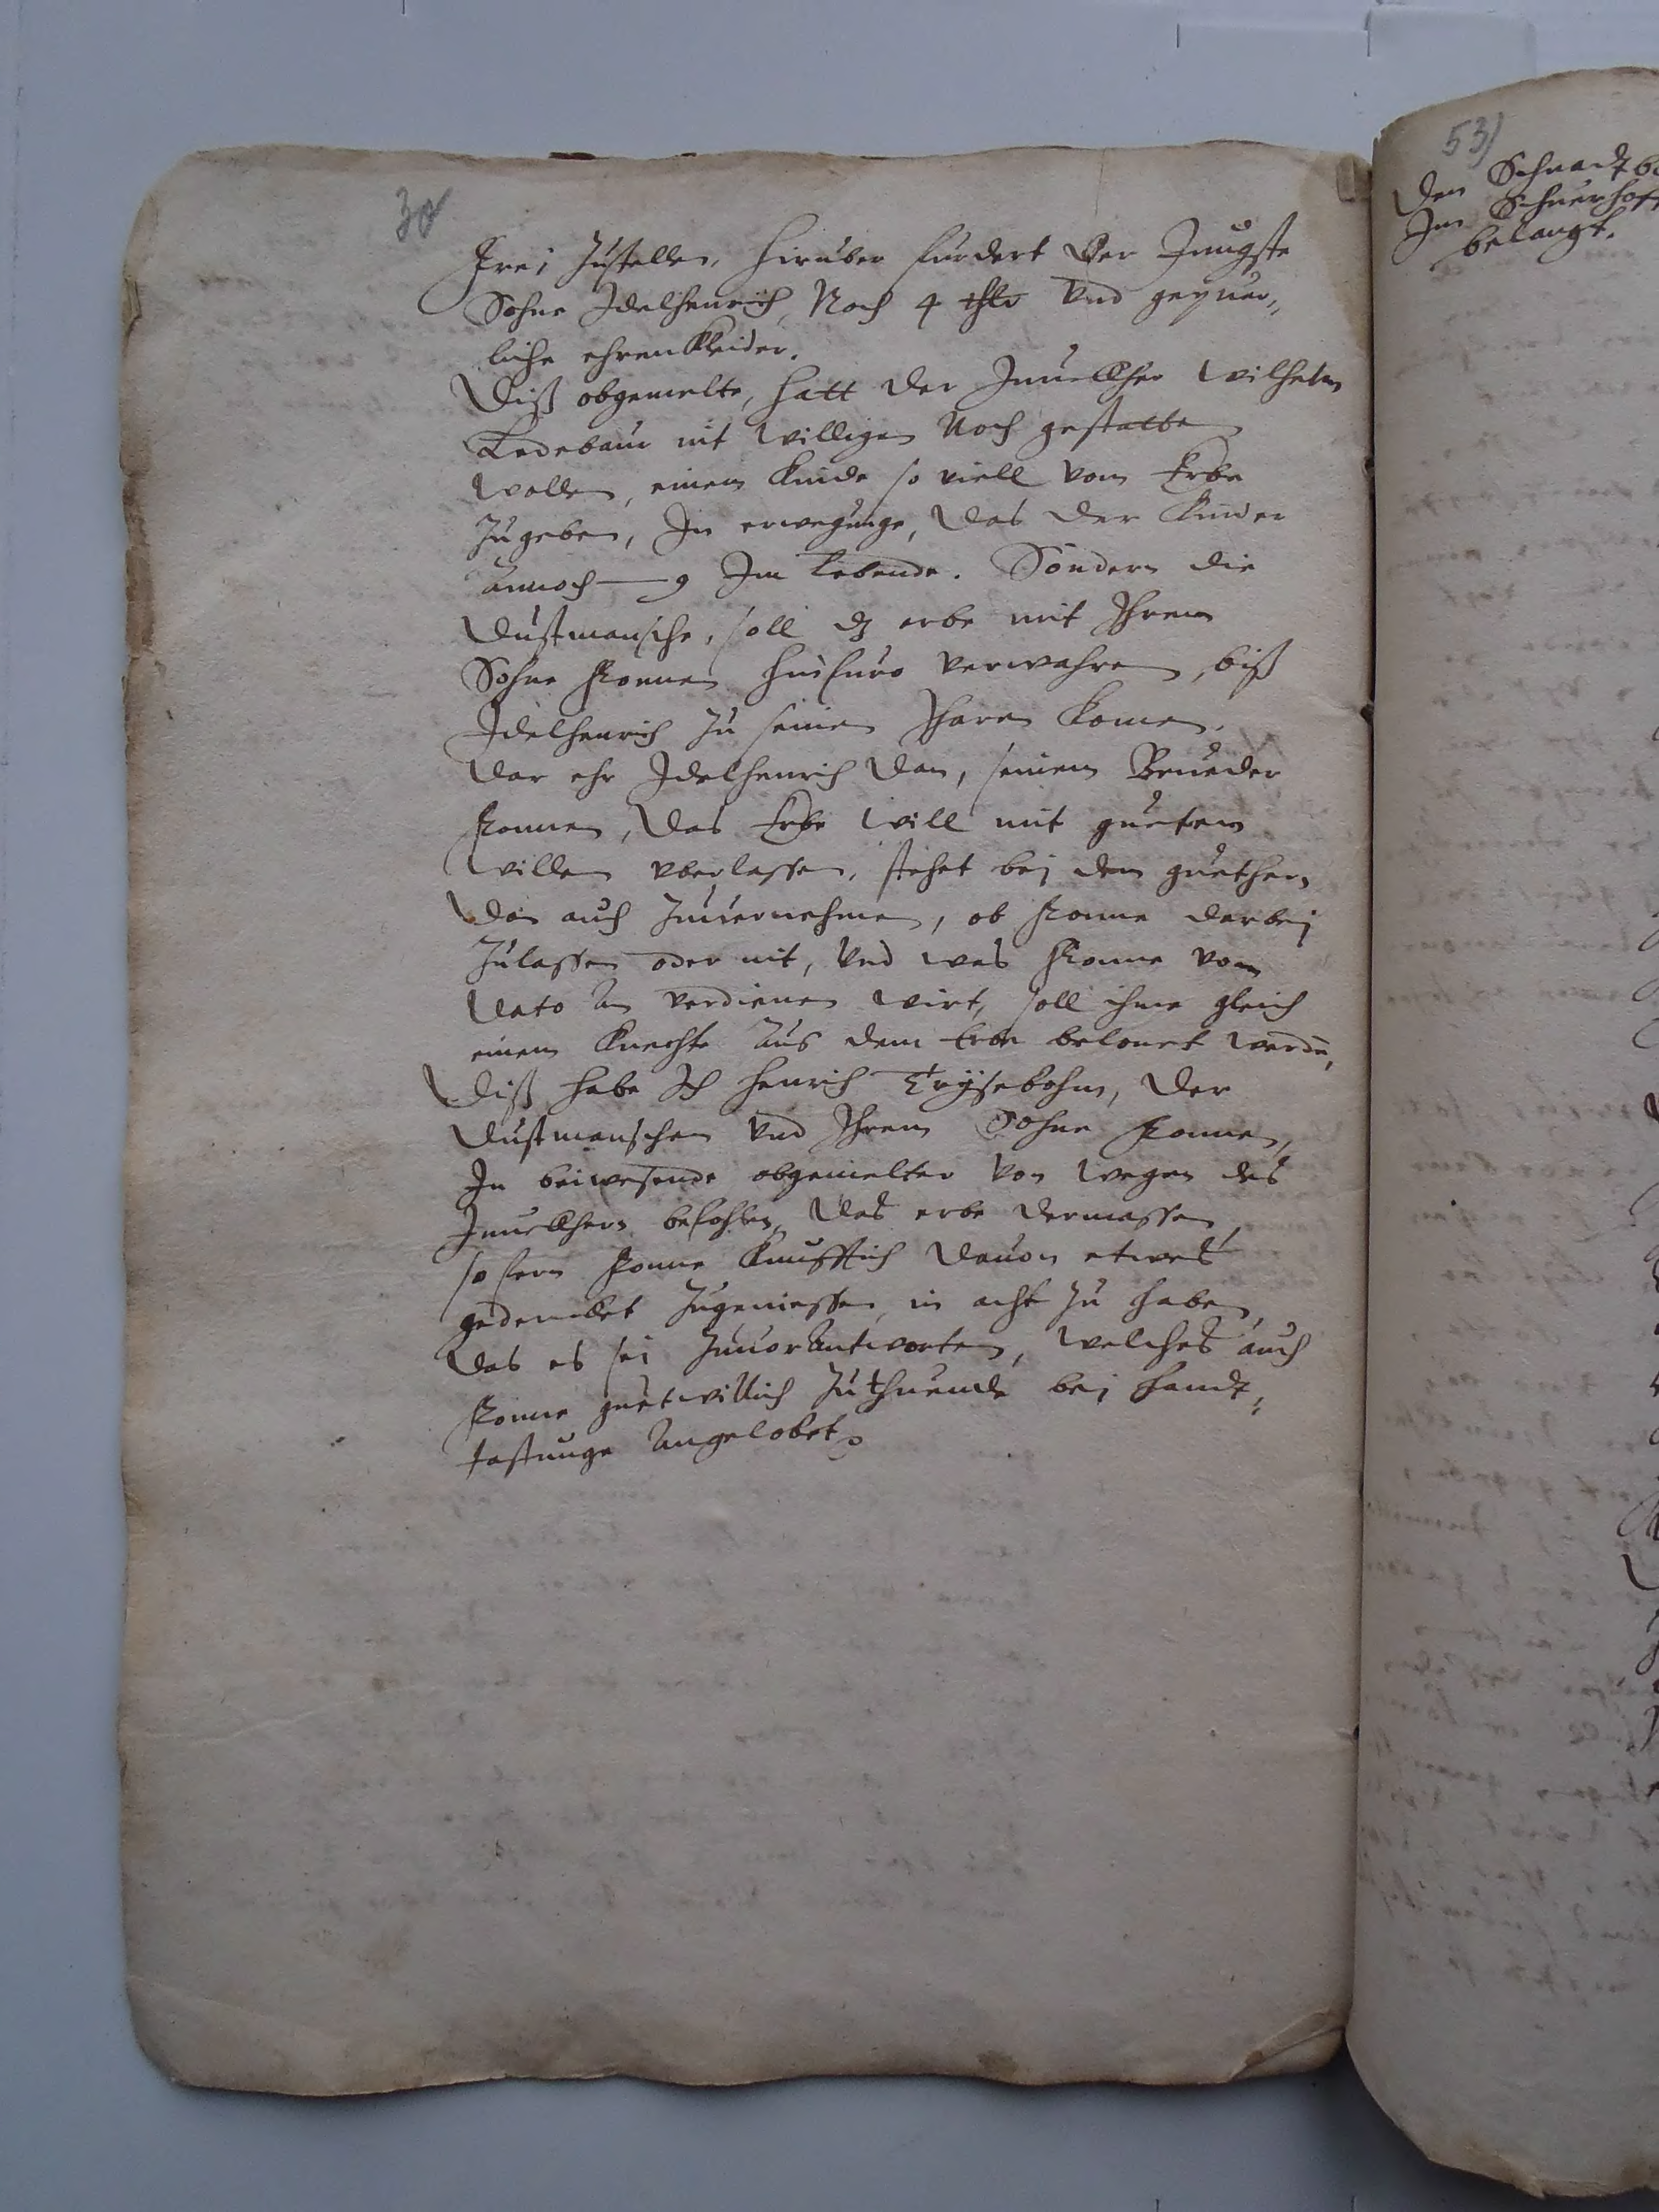 30
frei Zustellen, hiruber furdert der Jungste
Sohne Idelhenrich, Noch 4 thlr vnd gepuer„
liche ehrenkleider.
Diß obgemelte, hatt der Junckher Wilhelm
Ledebaur nit willigen Noch gestatten
wollen, einem Kinde so viell vom Erbe
Zugeben, In erwegunge, das der Kinder
annoch — 9 Im Lebende. Sondern die
Dustmansche, soll dz erbe mit Ihrem
Sohne Ronnen hinfuro verwahren, biß
Idelhenrich Zu seinen Jharen komen,
dar ehr Idelhenrich dan, seinem Brueder
Ronnen, das Erbe will mit guetem
willen vberlassen, stehet bei dem guethern
dan auch Zuuernehmen, ob Ronne darbei
Zulassen oder nit, vnd was Ronne vom
dato an verdienen wirt, soll ihme gleich
einem Knechte aus dem Erbe belonet werden,
Diß habe Ich Henrich Erÿsebohm, der
Dustmanschen vnd Ihrem Sohne Ronnen,
In beiwesende obgemelter von wegen des
Junckhern befohlen, das erbe dermassen,
so fern Ronne Kunfftich dauon etwas
gedencket Zugeniessen, in acht Zu haben,
das es sei Zuuorantworten, welches auch
Ronne guetwillich Zuthuende bei handt„
tastunge angelobet
53)
Den Schnadtb
Im Schuerhoff
belangt.